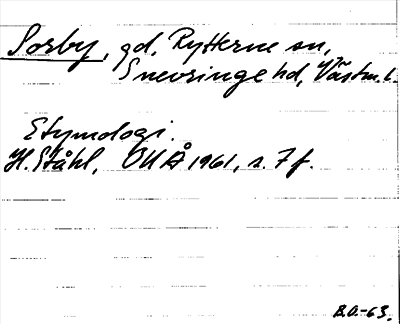 Sorby, gd, Rytterne sn,
Snevringe hd, Västm. l.
Etymologi.
H. Ståhl, OUÅ 1961, s. 7 f.
B.O.-63.